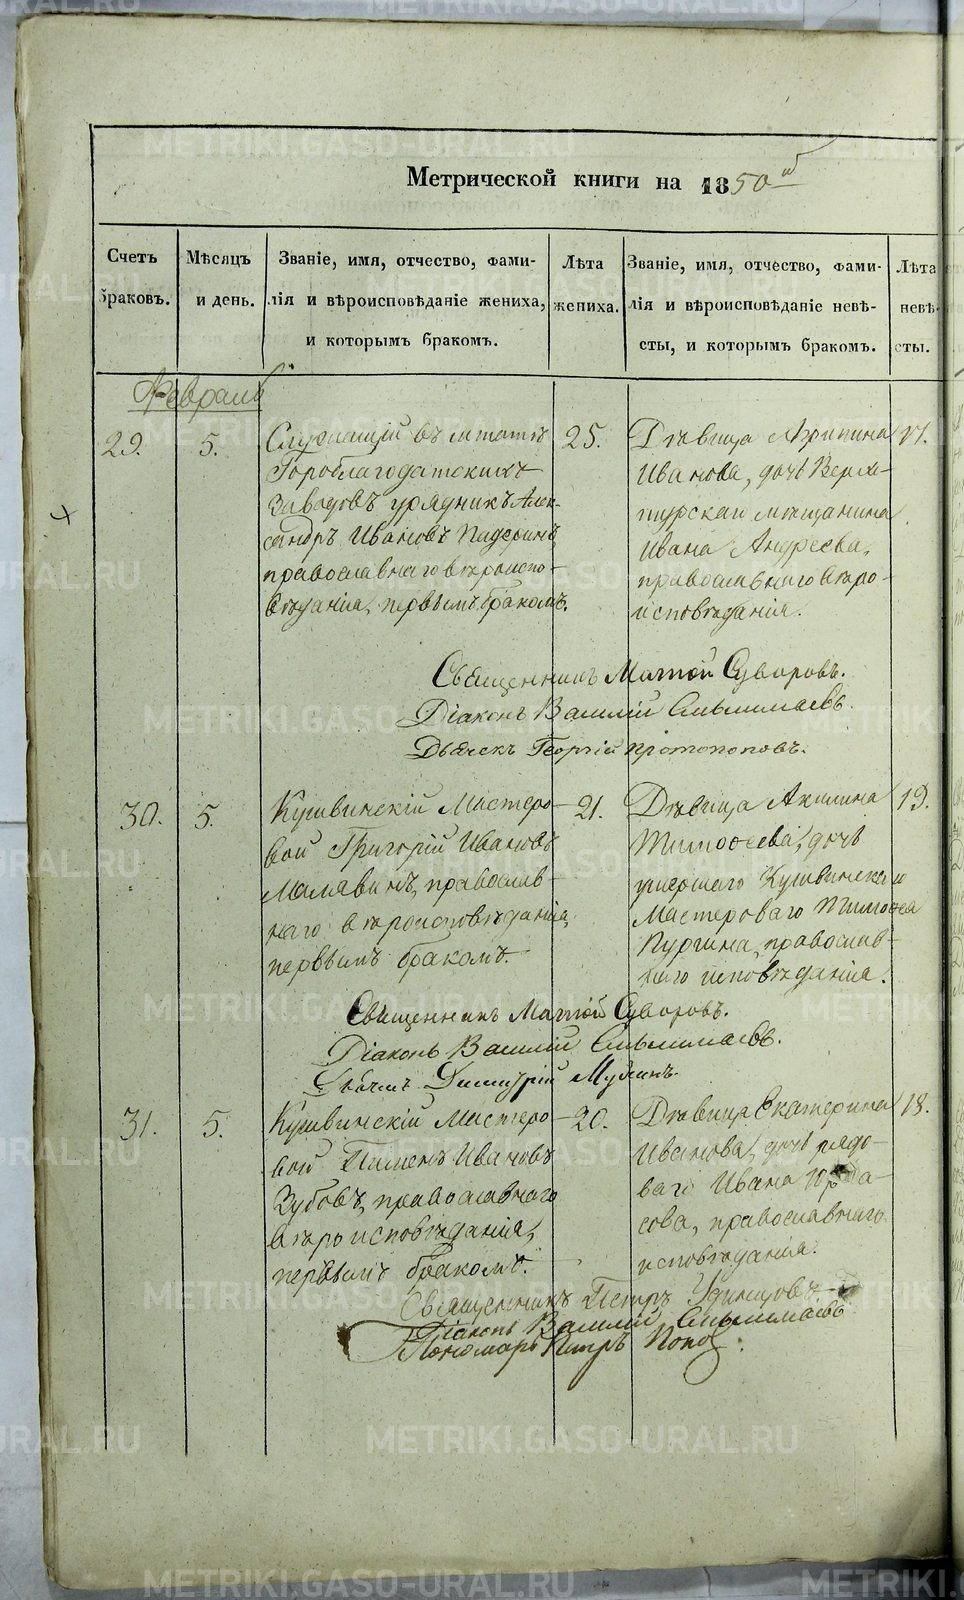 Метрической книги на 1850й
Счетъ браковъ.
Мѣсяцъ и день.
Званіе, имя, отчество, фами-
лія и вѣроисповѣданіе жениха,
и которымъ бракомъ.
Лѣта жениха.
Званіе, имя, отчество, фами-
лія и вѣроисповѣданіе невѣ-
сты, и которымъ бракомъ.
Лѣта невѣ-
сты.
Февраль
29.
5.
Служащій въ штатѣ
Гороблагодатскихъ
Заводовъ урядникъ Алек-
сандръ Ивановъ
православнаго вѣроиспо-
вѣданія, первымъ бракомъ.
25.
Дѣвица Агрипина
Иванова, дочь Верхо-
турскаго мѣщанина
Ивана Андреева,
православнаго вѣро-
исповѣданія.
17.
Священникъ Матѳій Суворовъ.
Діаконъ Василій
Дьячекъ Георгій Протопоповъ.
30.
5.
Кушвинскій Мастеро-
вой Григорій Ивановъ
Малявинъ, православ-
наго вѣроисповѣданія,
первымъ бракомъ.
21.
Дѣвица Акилина
Тимоѳеева, дочь
умершаго Кушвинскаго
Мастероваго Тимоѳея
Пургина, православ-
наго исповѣданія.
19.
Священникъ Матѳій Суворовъ.
Діаконъ Василій
Дьячекъ Димитрій
31.
5.
Кушвинскій Мастеро-
вой Пименъ Ивановъ
Зубовъ, православнаго
вѣроисповѣданія,
первымъ бракомъ.
20.
Дѣвица Екатерина
Иванова, дочь рядо-
ваго Ивана
сова, православнаго
исповѣданія.
18.
Священникъ Петръ Удинцовъ
Діаконъ Василій
Пономарь Петръ Поповъ
METRIKI.GASO-URAL.RU